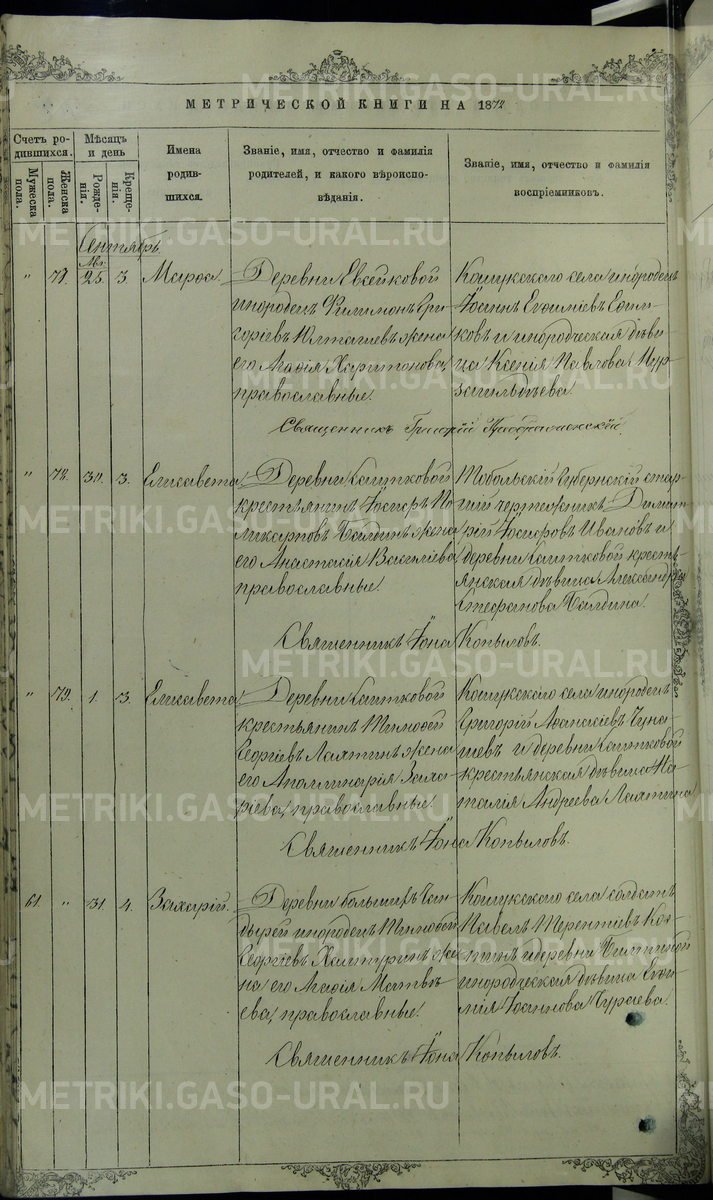 МЕТРИЧЕСКОЙ КНИГИ НА 1872
Счетъ ро-
дившихся.
Мужеска
пола.
Женска
пола.
Мѣсяцъ
и день
Рожде-
нія.
Креще-
нія.
Имена
родив-
шихся.
Званіе, имя, отчество и фамилія
родителей, и какого вѣроиспо-
вѣданія.
Званіе, имя, отчество и фамилія
воспріемниковъ.
Сентябрь
" 71. 25. 3. Марѳа
Деревни Евсейковой
инородецъ Филимонъ Гри-
горіевъ жена
его Агафія Харитонова,
православные.
Кошукскаго села инородецъ
Іоаннъ
ковъ и инородческая дѣви-
ца Ксенія Павлова
Священникъ Григорій
" 72. 30. 3. Елисавета
Деревни Саитковой
крестьянинъ Іосифъ По-
ликарповъ жена
его Анастасія Васильева,
православные.
Тобольскій Губернскій стар-
шій чертежникъ Димит-
рій Іосифовъ Ивановъ и
деревни Саитковой кресть-
янская дѣвица Александра
Стефанова
Священникъ Іона Копыловъ.
" 73. 1. 3. Елисавета
Деревни Саитковой
крестьянинъ Тимофей
Георгіевъ Лаптинъ жена
его Аполлинарія Заха-
ріева, православные.
Кошукскаго села инородецъ
Григорій Аѳанасіевъ Чуна-
шевъ и деревни Саитковой
крестьянская дѣвица На-
талія Андреева Лаптина
Священникъ Іона Копыловъ.
61. " 31. 4. Захарій.
Деревни большихъ
инородецъ Тимофей
Георгіевъ Халтуринъ же-
на его Агафія Матвѣ-
ева, православные.
Кошукскаго села солдатъ
Павелъ Терентіевъ
и деревни
инородческая дѣвица Евфи-
мія Іоаннова Чураева.
Священникъ Іона Копыловъ.
METRIKI.GASO-URAL.RU